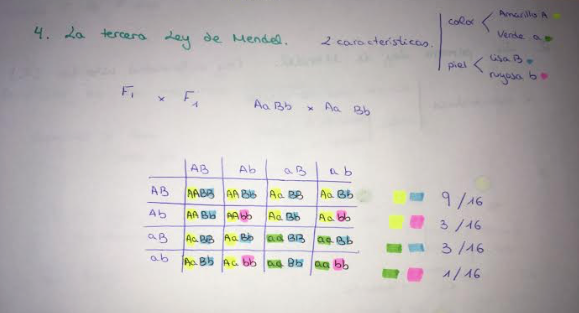 4. La tercera Ley de Mendel. 2 características.
color < Amarillo A
Verde a
piel < Lisa B
rugosa b
F1 x F1 AaBb x Aa Bb
AB Ab aB ab
AB AABB AABb AaBB AaBb
Ab AABb AAbb AaBb Aabb
aB AaBB AaBb aaBB aaBb
ab AaBb Aabb aaBb aabb
9/16
3/16
3/16
1/16